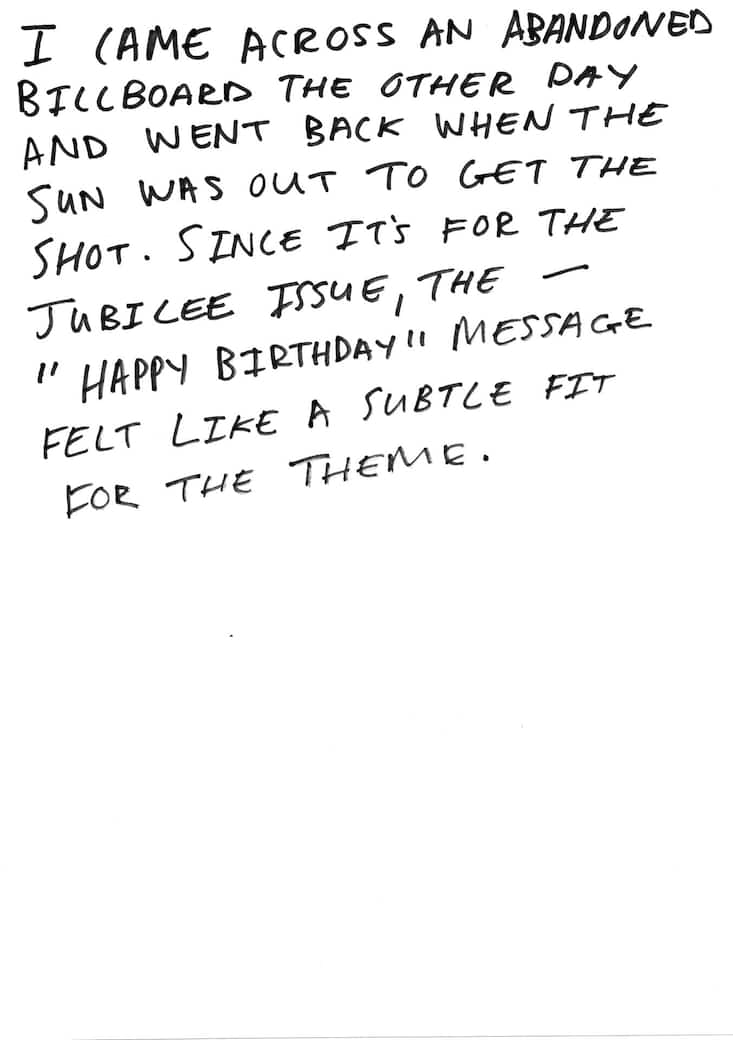 I CAME ACROSS AN ABANDONED
BILLBOARD THE OTHER DAY
AND WENT BACK WHEN THE
SUN WAS OUT TO GET THE
SHOT. SINCE IT'S FOR THE
JUBILEE ISSUE, THE —
"HAPPY BIRTHDAY" MESSAGE
FELT LIKE A SUBTLE FIT
FOR THE THEME.